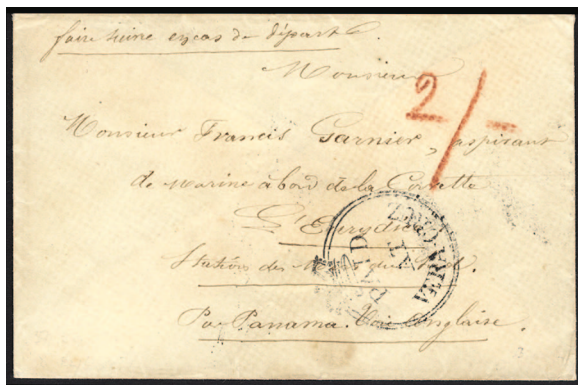 faire suivre en cas de départ
Monsieur
2/-
Monsieur Francis Garnier, aspirant
de Marine à bord de la Corvette
L'Eurydice
Station des
Par Panama. Voie Anglaise.
PAID
AT
VERA CRUZ